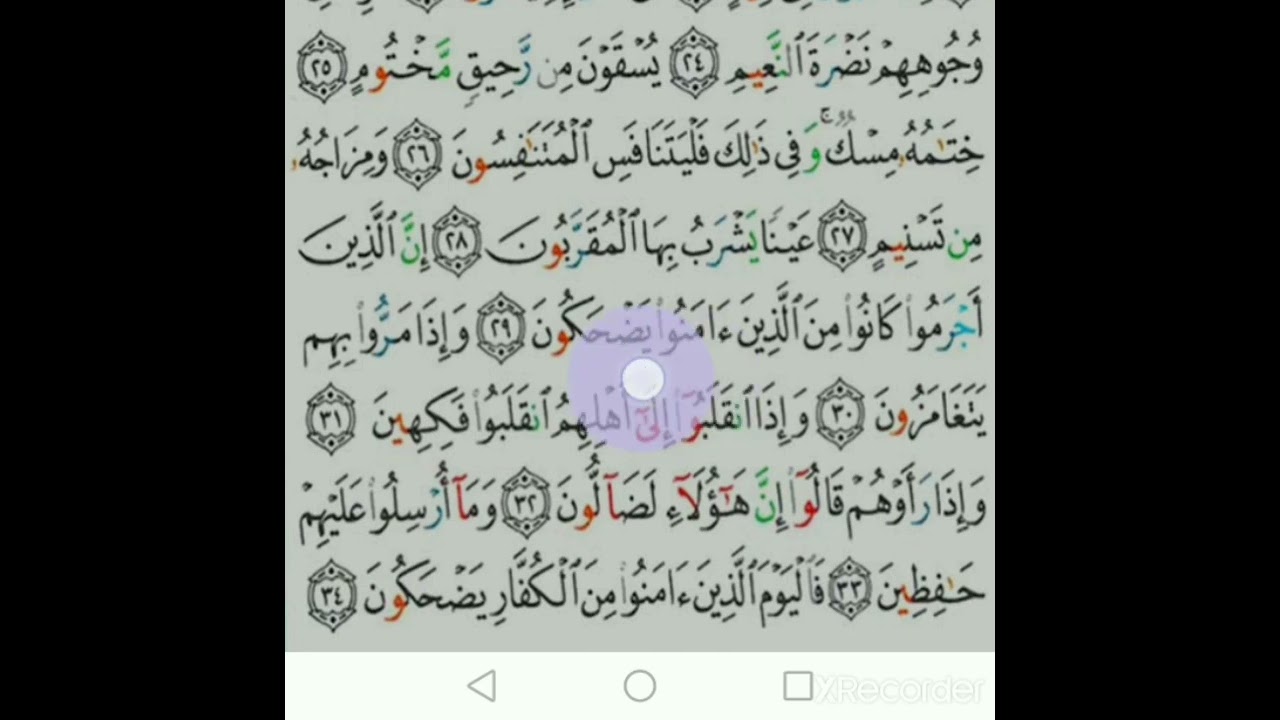 وُجُوهِهِمْ نَضْرَةَ ٱلنَّعِيمِ ٢٤ يُسْقَوْنَ مِن رَّحِيقٍ مَّخْتُومٍ ٢٥
خِتَٰمُهُۥ مِسْكٌ ۚ وَفِى ذَٰلِكَ فَلْيَتَنَافَسِ ٱلْمُتَنَٰفِسُونَ ٢٦ وَمِزَاجُهُۥ
مِن تَسْنِيمٍ ٢٧ عَيْنًا يَشْرَبُ بِهَا ٱلْمُقَرَّبُونَ ٢٨ إِنَّ ٱلَّذِينَ
أَجْرَمُوا۟ كَانُوا۟ مِنَ ٱلَّذِينَ ءَامَنُوا۟ يَضْحَكُونَ ٢٩ وَإِذَا مَرُّوا۟ بِهِمْ
يَتَغَامَزُونَ ٣٠ وَإِذَا ٱنقَلَبُوٓا۟ إِلَىٰٓ أَهْلِهِمُ ٱنقَلَبُوا۟ فَكِهِينَ ٣١
وَإِذَا رَأَوْهُمْ قَالُوٓا۟ إِنَّ هَٰٓؤُلَآءِ لَضَآلُّونَ ٣٢ وَمَآ أُرْسِلُوا۟ عَلَيْهِمْ
حَٰفِظِينَ ٣٣ فَٱلْيَوْمَ ٱلَّذِينَ ءَامَنُوا۟ مِنَ ٱلْكُفَّارِ يَضْحَكُونَ ٣٤
XRecorder